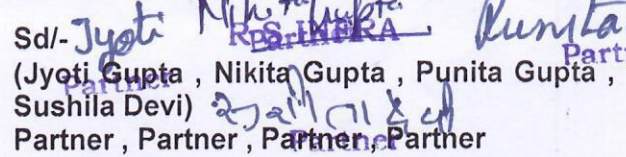 Sd/- Jyoti Nikita Gupta Punita
R S INFRA
Partner Partner
(Jyoti Gupta , Nikita Gupta , Punita Gupta ,
Partner
Sushila Devi) सुशीला देवी
Partner , Partner , Partner , Partner
Partner